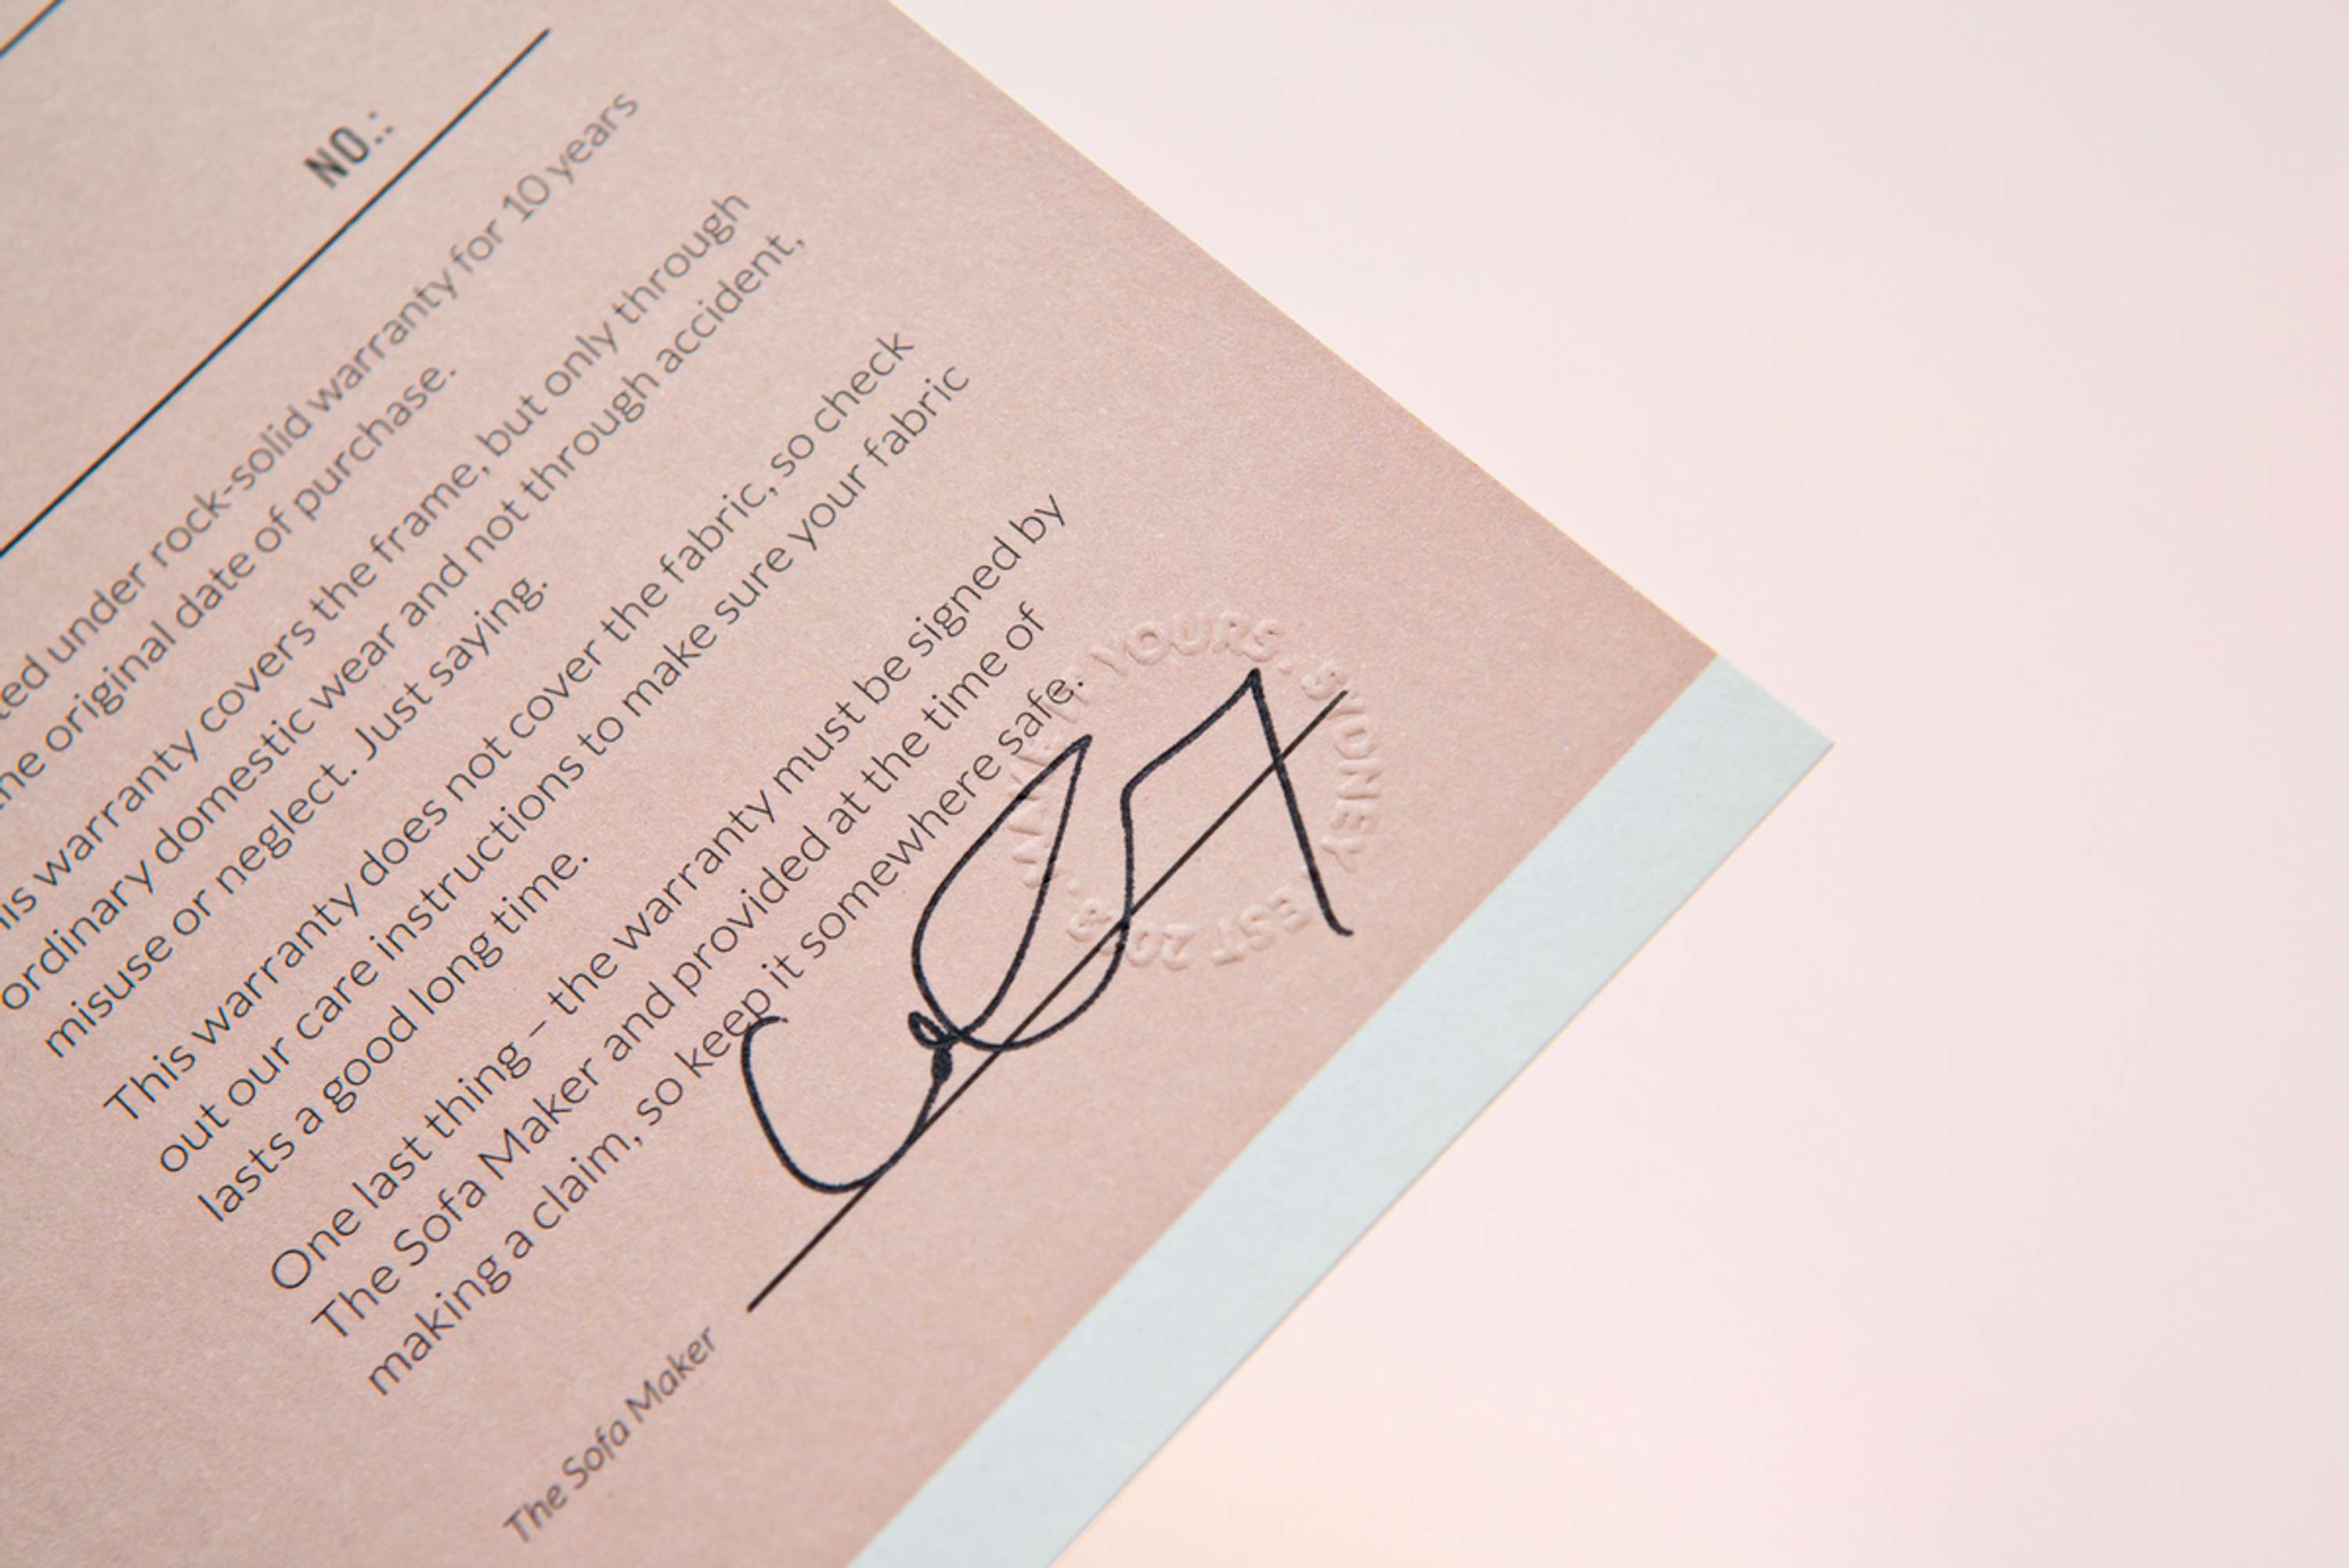 NO.:
under rock-solid warranty for 10 years
original date of purchase.
warranty covers the frame, but only through
ordinary domestic wear and not through accident,
misuse or neglect. Just saying.
This warranty does not cover the fabric, so check
out our care instructions to make sure your fabric
lasts a good long time.
One last thing – the warranty must be signed by
The Sofa Maker and provided at the time of
making a claim, so keep it somewhere safe.
The Sofa Maker
MAKE IT YOURS. SYDNEY
EST